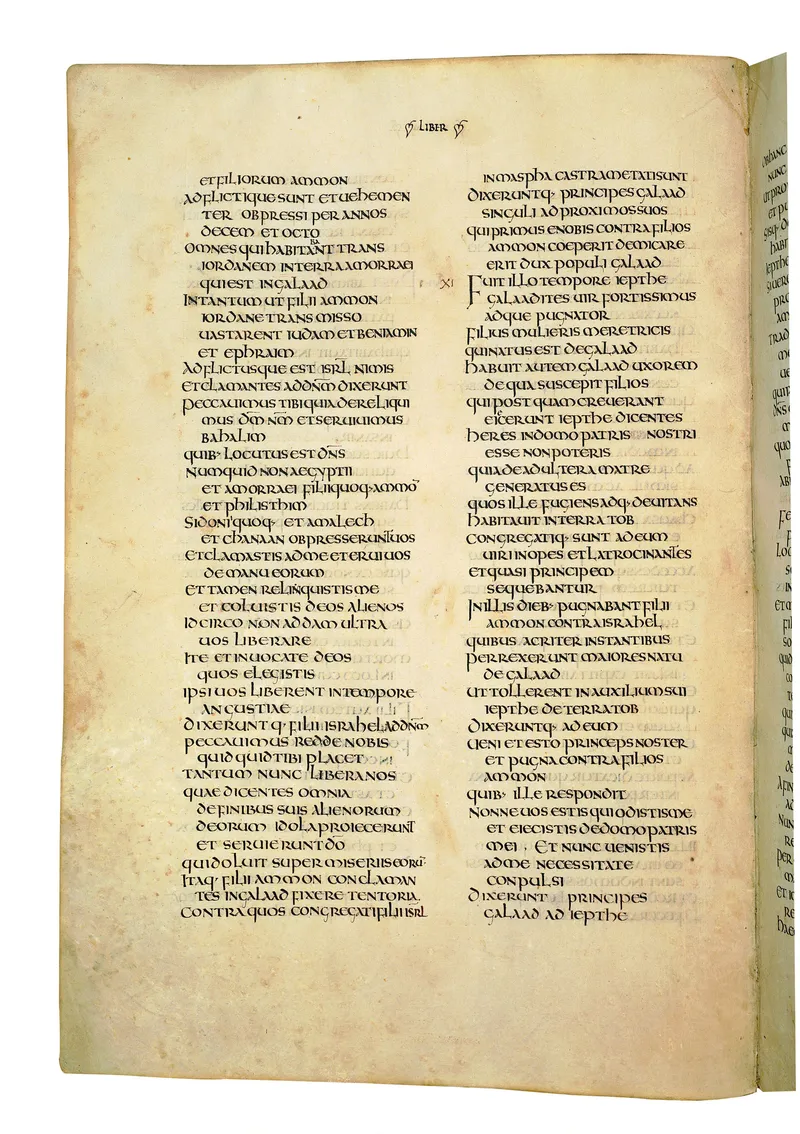 LIBER
ET FILIORUM AMMON
ADFLICTIQUE SUNT ET UEHEMEN
TER OBPRESSI PER ANNOS
DECEM ET OCTO
OMNES QUI HABITANT TRANS
IORDANEM IN TERRA AMORRAEI
QUI EST IN GALAAD
IN TANTUM UT FILII AMMON
IORDANE TRANSMISSO
UASTARENT IUDAM ET BENIAMIN
ET EPHRAIM
ADFLICTUSQUE EST ISRL̄ NIMIS
ET CLAMANTES AD DN̄M DIXERUNT
PECCAUIMUS TIBI QUIA DERELIQUI
MUS DM̄ NM̄ ET SERUIUIMUS
BAHALIM
QUIB· LOCUTUS EST DN̄S
NUMQUID NON AEGYPTII
ET AMORRAEI FILIIQUOQ· AMMŌ
ET PHILISTHIM
SIDONI QUOQ· ET AMALECH
ET CHANAAN OBPRESSERUNT UOS
ET CLAMASTIS AD ME ET ERUI UOS
DE MANU EORUM
ET TAMEN RELINQUISTIS ME
ET COLUISTIS DEOS ALIENOS
IDCIRCO NON ADDAM ULTRA
UOS LIBERARE
ITE ET INUOCATE DEOS
QUOS ELEGISTIS
IPSI UOS LIBERENT IN TEMPORE
ANGUSTIAE
DIXERUNTQ· FILII ISRAHEL AD DN̄M
PECCAUIMUS REDDE NOBIS
QUIDQUID TIBI PLACET
TANTUM NUNC LIBERA NOS
QUAE DICENTES OMNIA
DE FINIBUS SUIS ALIENORUM
DEORUM IDOLA PROIECERUNT
ET SERUIERUNT DŌ
QUI DOLUIT SUPER MISERIIS EORU·
ITAQ· FILII AMMON CONCLAMAN
TES IN GALAAD FIXERE TENTORIA
CONTRA QUOS CONGREGATI FILII ISRL
IN MASPHA CASTRAMETATI SUNT
DIXERUNTQ· PRINCIPES GALAAD
SINGULI AD PROXIMOS SUOS
QUI PRIMUS E NOBIS CONTRA FILIOS
AMMON COEPERIT DEMICARE
ERIT DUX POPULI GALAAD
XI FUIT ILLO TEMPORE IEPTHE
GALAADITES UIR FORTISSIMUS
ADQUE PUGNATOR
FILIUS MULIERIS MERETRICIS
QUI NATUS EST DE GALAAD
HABUIT AUTEM GALAAD UXOREM
DE QUA SUSCEPIT FILIOS
QUI POSTQUAM CREUERANT
EICERUNT IEPTHE DICENTES
HERES IN DOMO PATRIS NOSTRI
ESSE NON POTERIS
QUIA DE ADULTERA MATRE
GENERATUS ES
QUOS ILLE FUGIENS ADQ· DEUITANS
HABITAUIT IN TERRA TOB
CONGREGATIQ· SUNT AD EUM
UIRI INOPES ET LATROCINANTES
ET QUASI PRINCIPEM
SEQUEBANTUR
IN ILLIS DIEB· PUGNABANT FILII
AMMON CONTRA ISRAHEL
QUIBUS ACRITER INSTANTIBUS
PERREXERUNT MAIORES NATU
DE GALAAD
UT TOLLERENT IN AUXILIUM SUI
IEPTHE DE TERRA TOB
DIXERUNTQ· AD EUM
UENI ET ESTO PRINCEPS NOSTER
ET PUGNA CONTRA FILIOS
AMMON
QUIB· ILLE RESPONDIT
NONNE UOS ESTIS QUI ODISTIS ME
ET EIECISTIS DE DOMO PATRIS
MEI · ET NUNC UENISTIS
AD ME NECESSITATE
CONPULSI
DIXERUNT PRINCIPES
GALAAD AD IEPTHE